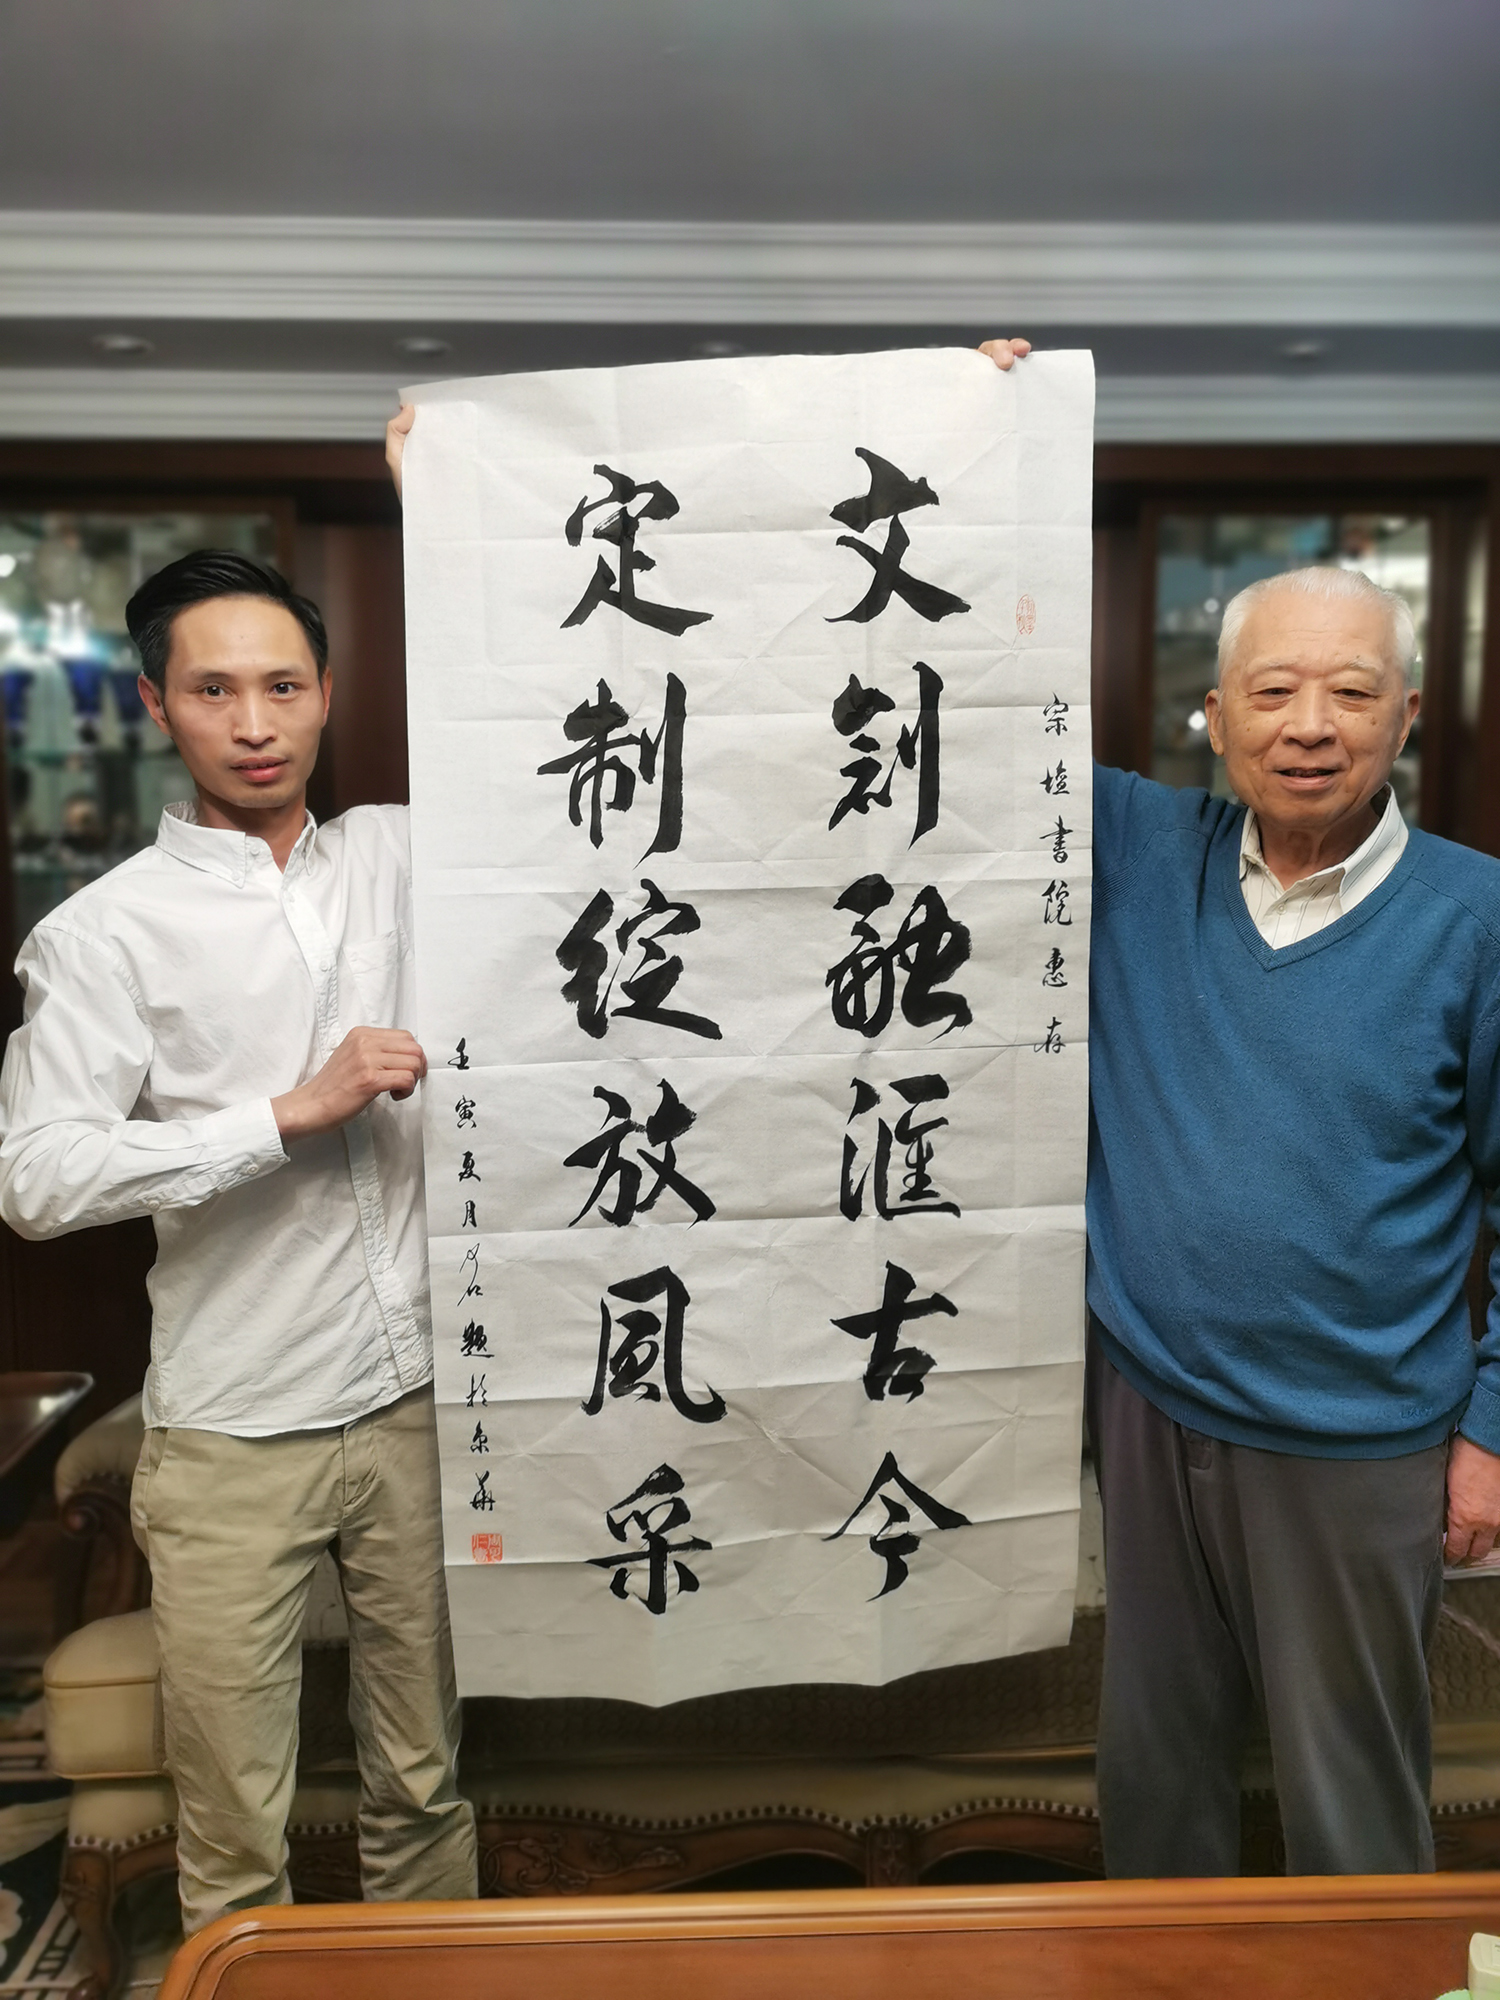 宗壇書院惠存
文創融滙古今
定制綻放風采
壬寅夏月
題於京華